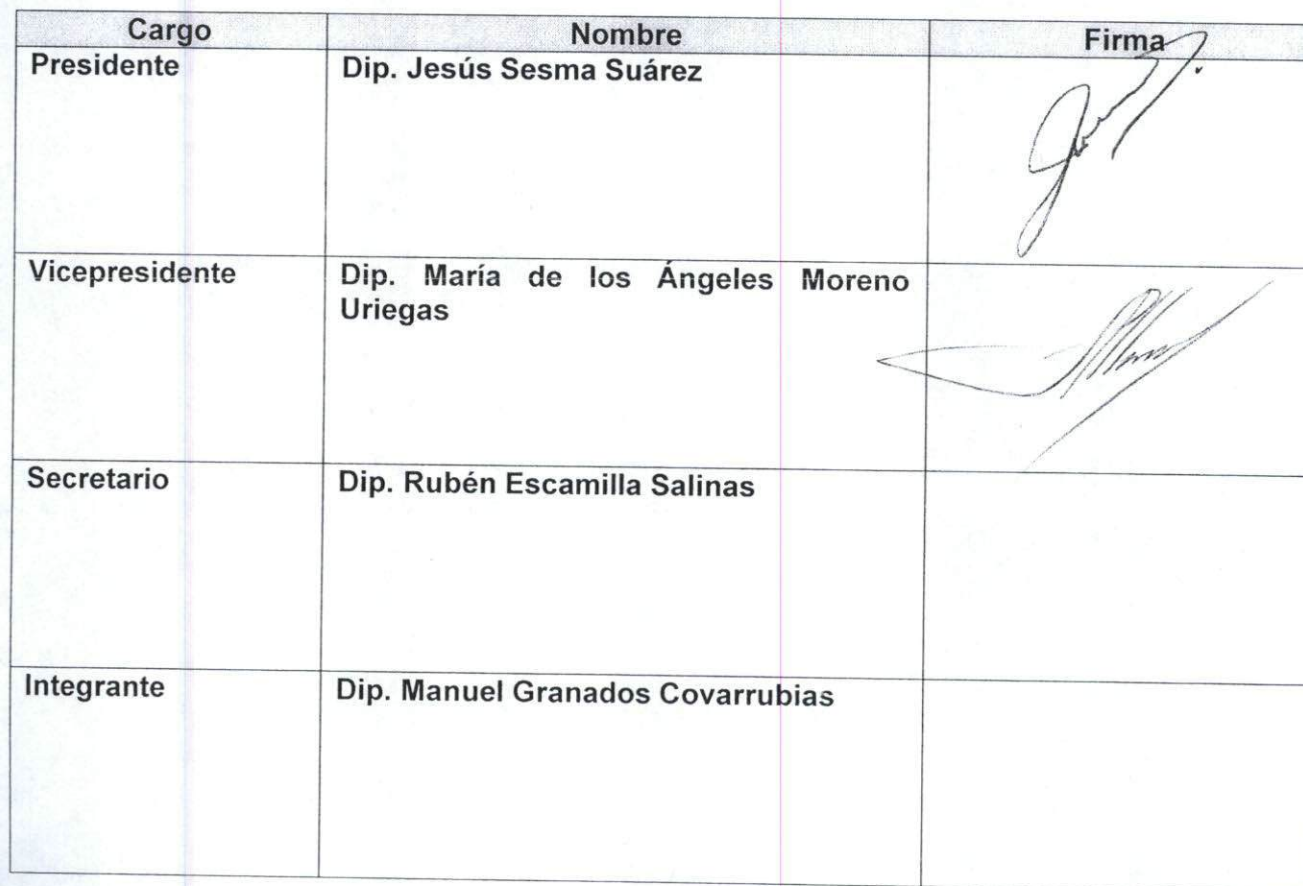 Cargo Nombre Firma
Presidente Dip. Jesús Sesma Suárez
Vicepresidente Dip. María de los Ángeles Moreno
Uriegas
Secretario Dip. Rubén Escamilla Salinas
Integrante Dip. Manuel Granados Covarrubias